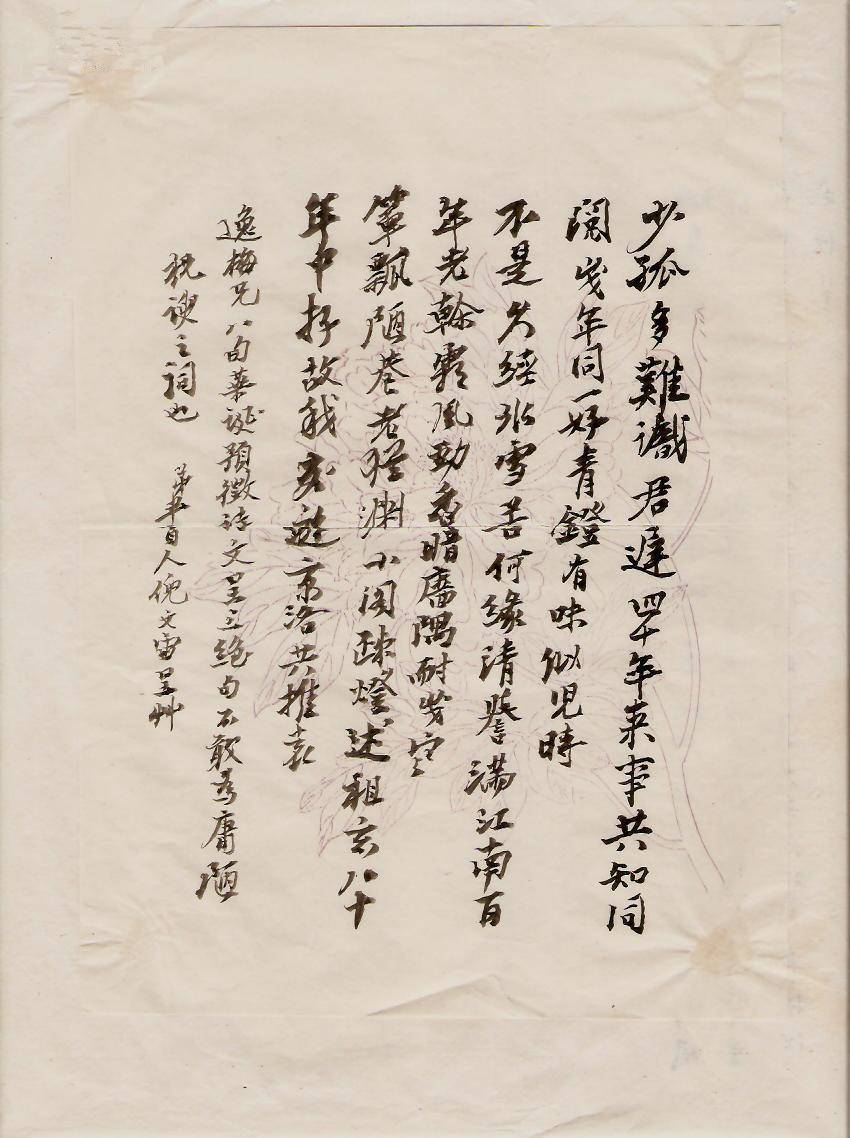 少孤多難識君遲四十年来事共知同
閱歲年同一好青鐙有味似兒時
不是久經冰雪苦何緣清譽滿江南百
年老幹霜風勁香暗廉隅耐歲寒
簞瓢陋巷老猶淵小閣疎燈述祖玄八十
年中存故我交遊京洛共推袁
逸梅兄八旬華誕預徵詩文呈三絕句不敢為庸陋
祝諛之詞也
弟半百人倪文宙呈艸